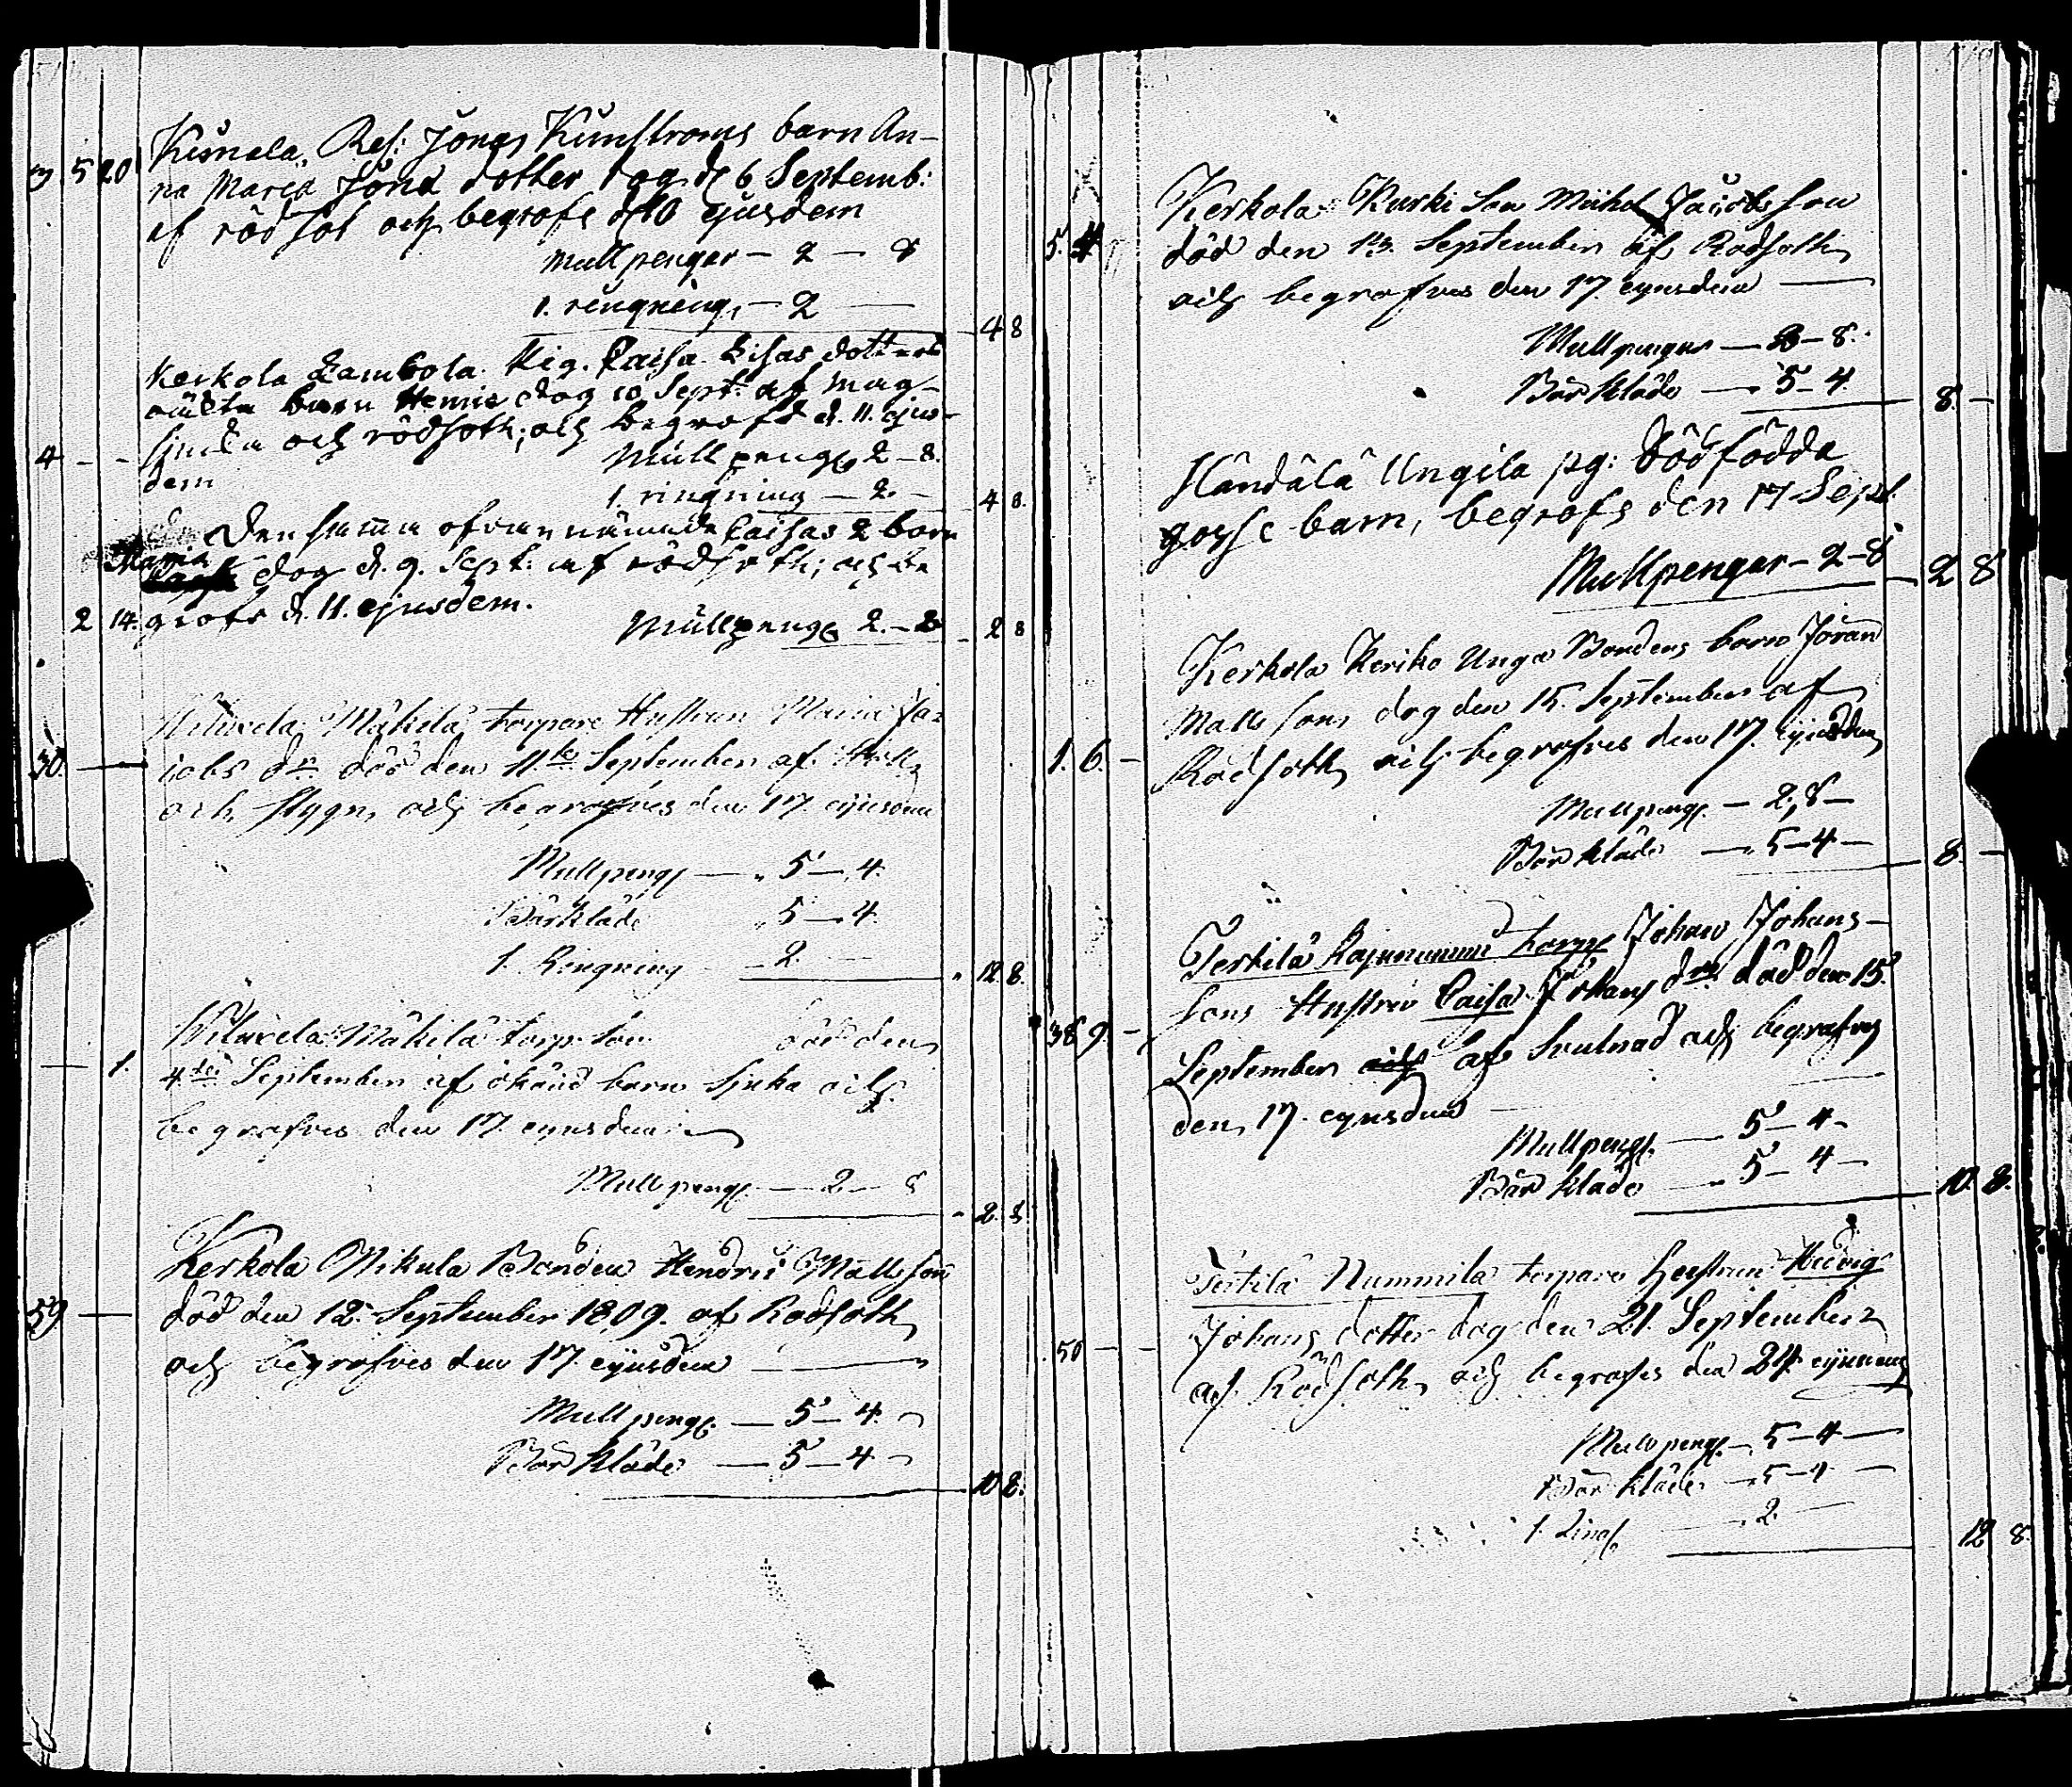 Kumela, Ref: Jonas Kunstroms barn An-
3 5 20 na Maria Jona dotter dog d. 6 Septemb:
af rödsot och begrofs d. 10 ejusdem
Mullpengar - 2 - 8
1. ringning, - 2 -
4 8
Kerkola Lambola Pig. Caisa Lisas dotters
oäckta barn Henric dog 10 Sept: af mag-
4 - - sjucka och rödsoth; och begrofs d. 11. ejus-
dem Mullpeng 2 - 8.
1 ringning - 2. - 4 8.
Den samma ofvannämnde Caisas 2 barn
Maria dog d. 9. Sept. af rödsoth; och be
2 14. grofs d. 11. ejusdem.
Mullpeng 2. - 8 - 2 8
Mäkilä torpare Hustrun Maria Ja-
50. - cobs dr. död den 11te September af Håll
och stygn, och begrafves den 17 ejusdem
Mullpeng - 5 - 4.
Bårkläde 5 - 4
1. Ringning - 2. -
12. 8.
Mäkilä torp. Son död den
- 1. 4de September af okänd barn sjuka och
begrafves den 17 ejusdem
Mullpeng - 2 - 8
2. 8
Kerkola Nikula Bonden Hendric Matts son
59 - död den 12. September 1809. af Rödsoth
och begrafves den 17. ejusdem
Mullpeng. - 5 - 4.
Bår kläde - 5 - 4
10 8.
Kerkola Kurki Son Michel Jacobs son
5. 4 död den 13. September af Rödsoth
och begrafves den 17. ejusdem -
Mullpengar - 2 - 8.
Bår kläde - 5 - 4.
8. -
Händälä Ungila pg: Dödfödda
gosse barn, begrofs den 17 Sept.
Mullpengar - 2 - 8 - 2 8
Kerkola Heriko Unga Bondens barn Joran
Matts sons dog den 15. September af
1. 6. - Rödsoth och begrafves den 17. ejusdem
Mullpeng. - 2, 8 -
Bår kläde - 5 - 4 -
8. -
Terkilä torp Johan Johans-
sons Hustru Caisa Johans dr. död den 15.
38 9. - September af Svulnad och begrafves
den 17. ejusdem
Mullpeng. - 5 - 4 -
Bår kläde - 5 - 4 -
10. 8.
Nummila torpares Hustrun Hedvig
Johans dotter dog den 21. September
50 - - af Rödsoth, och begrafves den 24
Mullpeng. - 5 - 4 -
Bår kläde - 5 - 4 -
1. Ring. - 2. -
12 8.